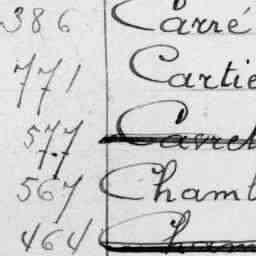 386 Carré
771 Cartie
577 Cavrel
567 Chamb
464